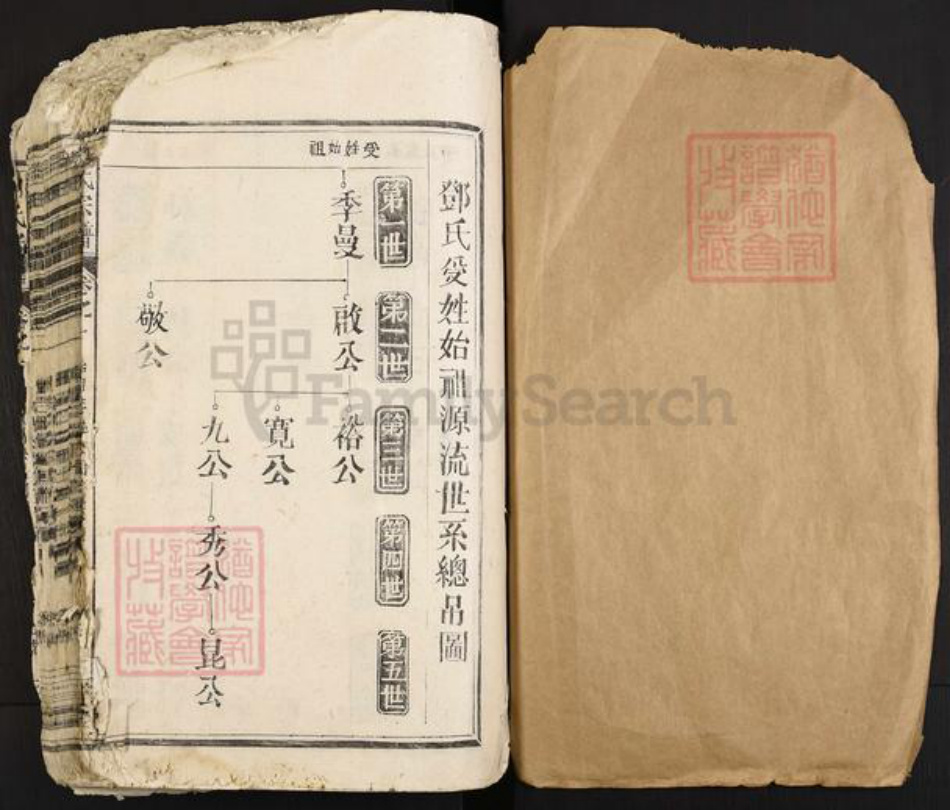 鄧氏受姓始祖源流世系總吊圖
受姓始祖
第一世
季曼
第二世
啟公
敬公
第三世
裕公
寬公
九公
第四世
秀公
第五世
昆公
氏宗譜
卷之一
FamilySearch
猶他家
譜學會
收藏
猶他家
譜學會
收藏